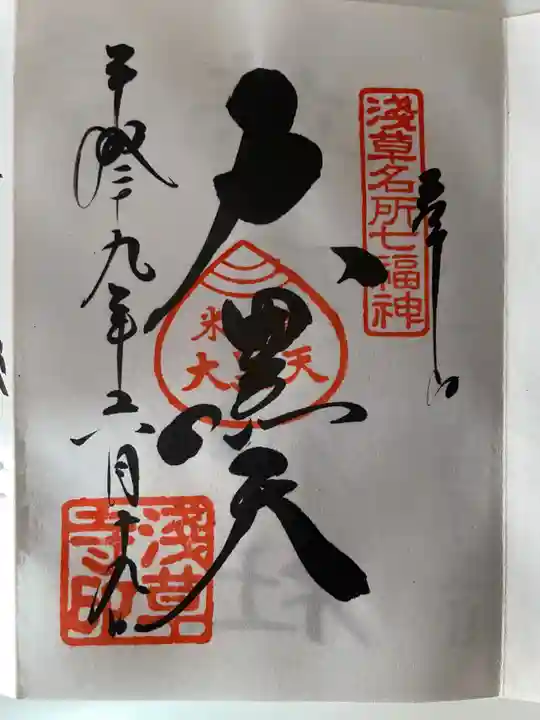 淺草名所七福神
奉拝
大黒天
米
大黒天
平成二十九年六月十九日
淺草寺印